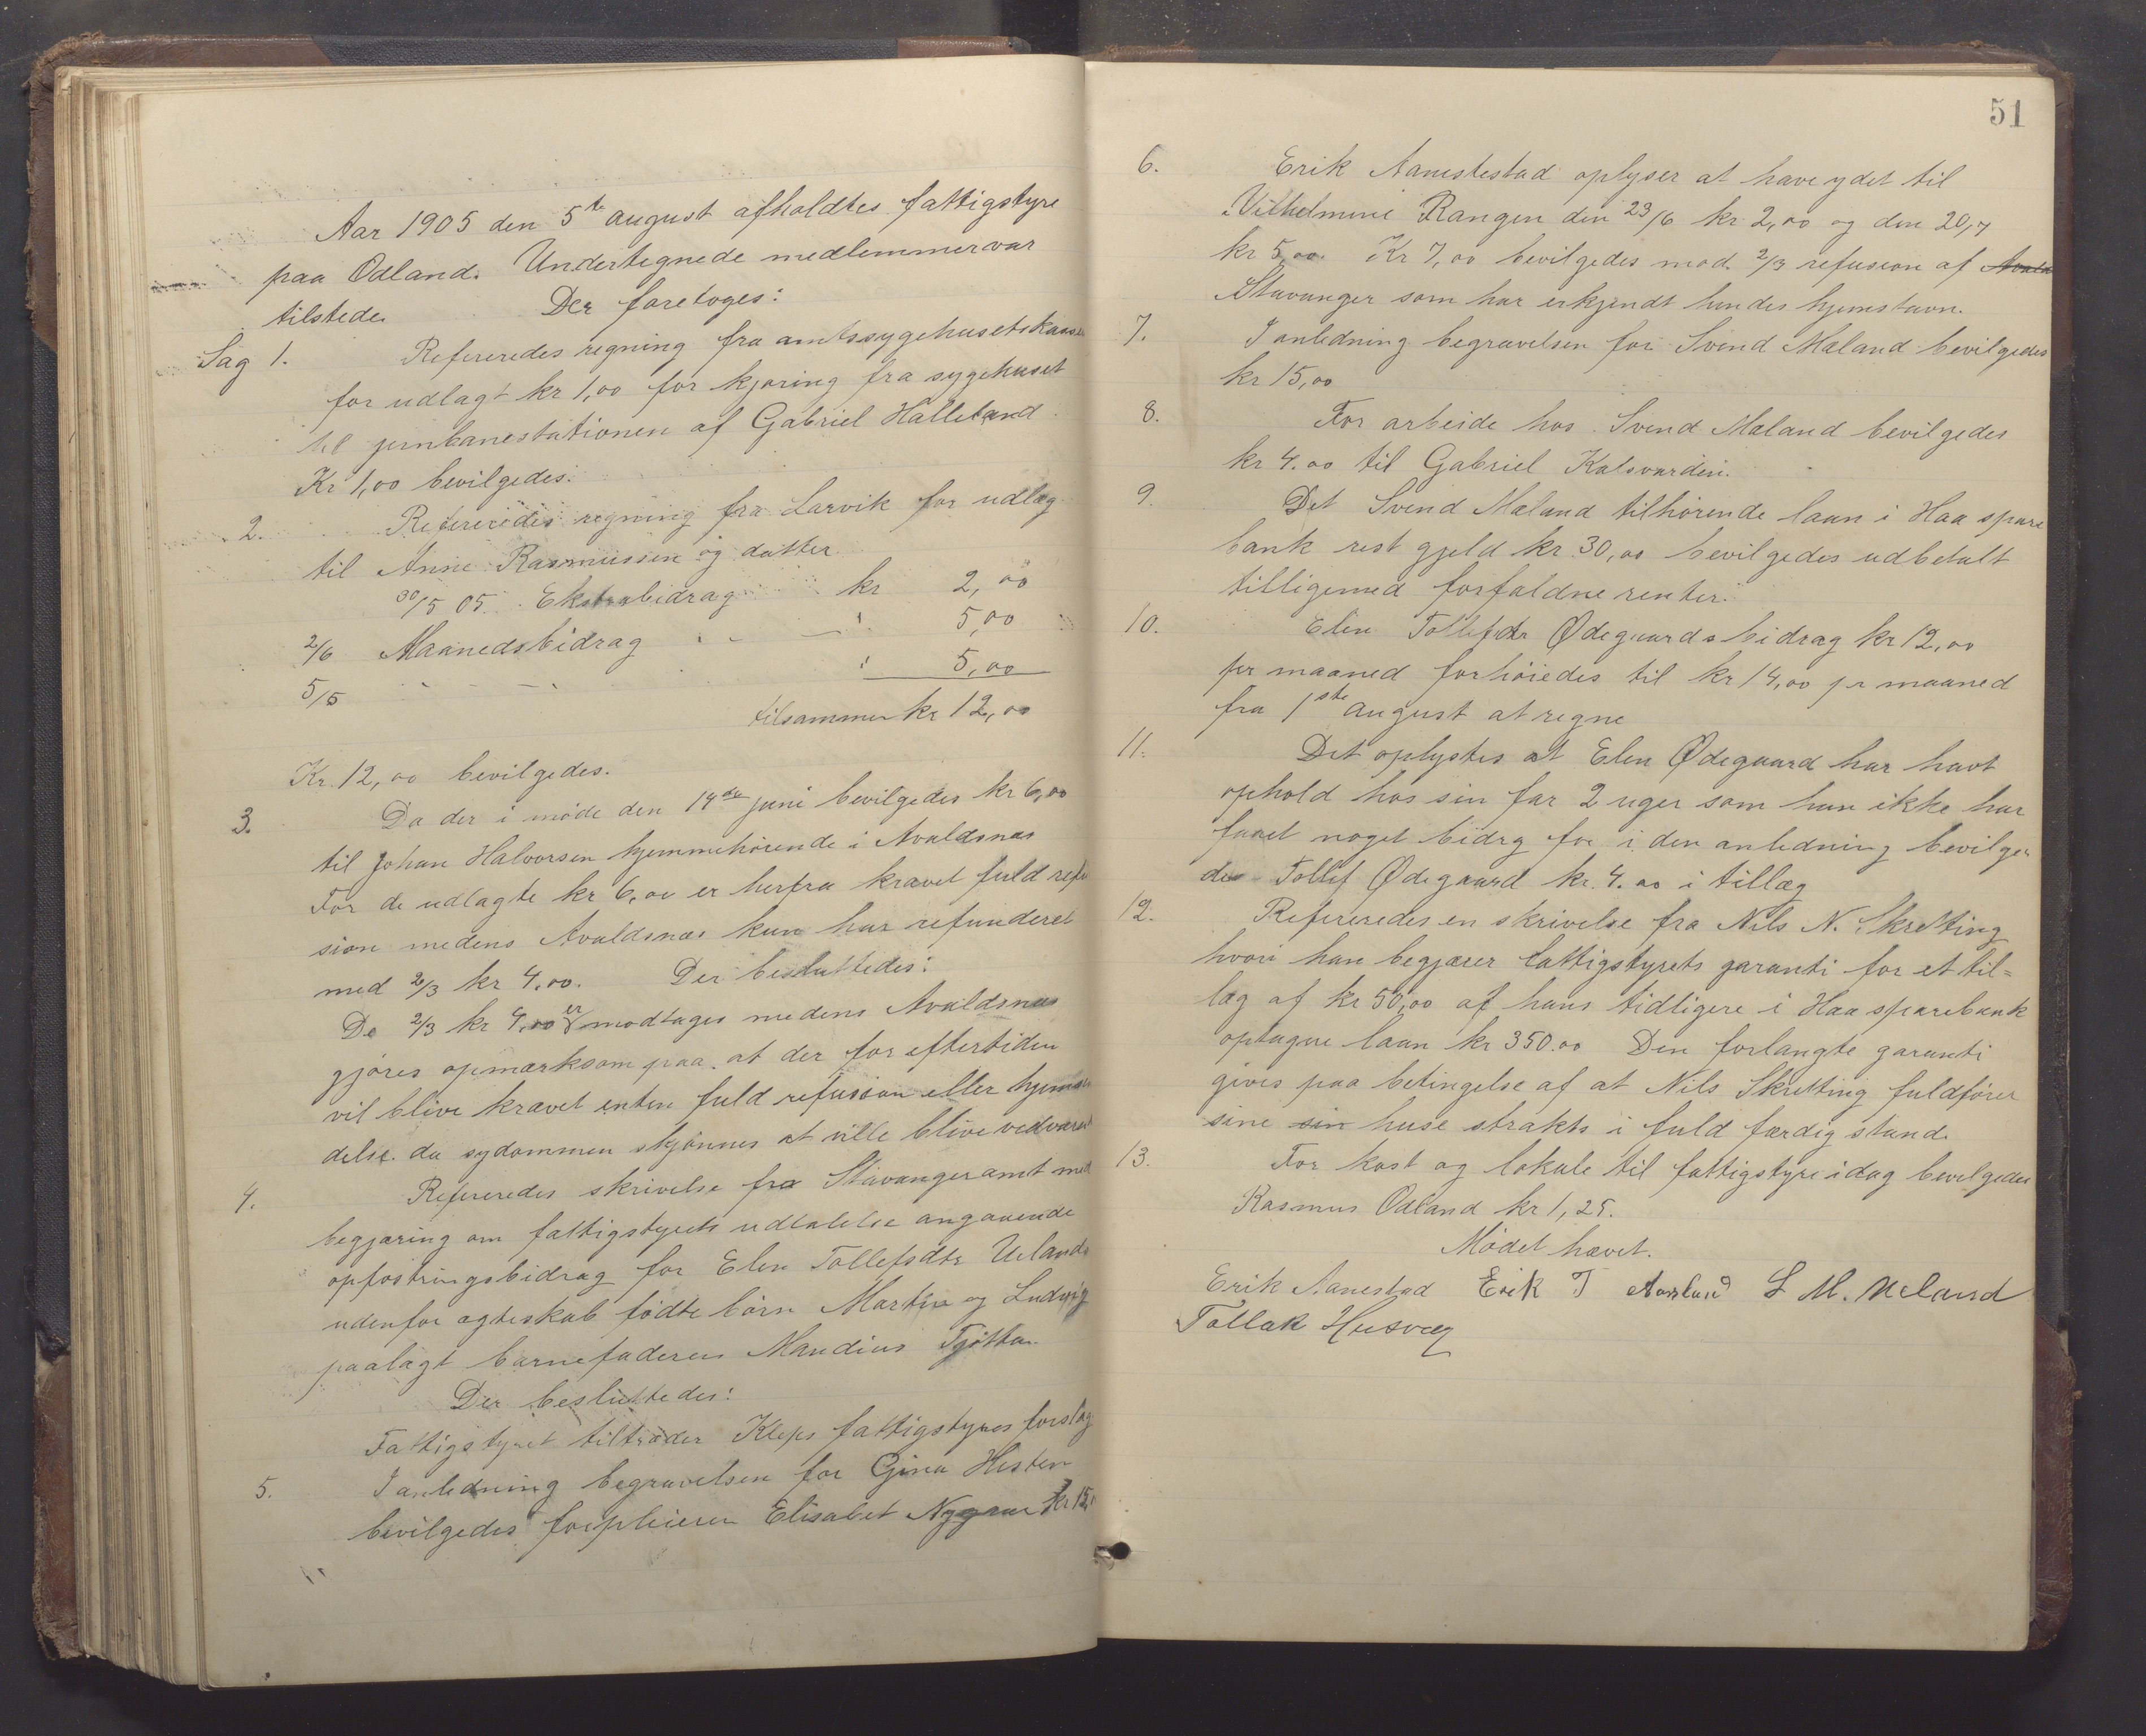 Aar 1905 den 5te august afholdtes fattigstyre
paa Odland. Undertegnede medlemmer var
tilstede. Der foretoges:
Sag 1. Refereredes regning fra amtssygehusetskasse
for udlagt kr 1,00 for kjøring fra sygehuset
til jernbanestationen af Gabriel Halleland
Kr 1,00 bevilgedes.
2. Refereredes regning fra Larvik for udlæg
til Anne Rasmussen og datter
30/5 05. Ekstrabidrag kr 2,00
2/6 Maanedsbidrag " 5,00
5/5 " " 5,00
tilsammen kr 12,00
Kr. 12,00 bevilgedes.
3. Da der i møde den 14de juni bevilgedes kr 6,00
til Johan Halvorsen hjemmehørende i Avaldsnæs
For de udlagte kr 6,00 er herfra krævet fuld refu
sion medens Avaldsnæs kun har refunderet
med 2/3 kr 4,00. Der besluttedes:
De 2/3 kr 4,00 er modtages medens Avaldsnæs
gjøres opmærksom paa, at der for eftertiden
vil blive krævet enten fuld refusion eller hjemsen
delse. da sydommen skjønnes at ville blive vedvarend
4. Refereredes skrivelse fra Stavanger amt med
begjæring om fattigstyrets udtalelse angaaende
opfostringsbidrag for Elen Tollefsdtr Uelands
udenfor ægteskab fødte børn Martin og Ludvig
paalagt barnefaderen Maudius Tjøtta.
Der besluttedes:
Fattigstyret tiltræder Kleps fattigstyres forslag
5. I anledning begravelsen for Gina Hesten
bevilgedes forpleieren Elisabet kr 15,
51
6. Erik Aanestestad oplyser at have ydet til
Vilhelmine Rangen den 23/6 kr 2,00 og den 20,7
kr 5,00. Kr 7,00 bevilgedes mod 2/3 refusion af Avala
Stavanger som har erkjendt hendes hjemstavn.
7. I anledning begravelsen for Svend Maland bevilgedes
kr 15,00
8. For arbeide hos Svend Maland bevilgedes
kr 4.00 til Gabriel Kalsvarden.
9. Det Svend Maland tilhørende laan i Haa spare
bank rest gjeld kr 30,00 bevilgedes udbetalt
tilligemed forfaldne renter.
10. Elen Tollefsdtr Ødegaards bidrag kr 12,00
per maaned forhøiedes til kr 14,00 pr maaned
fra 1ste august at regne
11. Det oplystes at Elen Ødegaard har havt
ophold hos sin far 2 uger som han ikke har
faaet noget bidrg for i den anledning bevilge
des Tollef Ødegaard kr. 4.00 i tillæg
12. Refereredes en skrivelse fra Nils N. Skretting
hvori han begjærer fattigstyrets garanti for et til=
læg af kr 50,00 af hans tidligere i Haa sparebank
optagne laan kr 350.00 Den forlangte garanti
gives paa betingelse af at Nils Skretting fuldfører
sine sin huse strakts i fuld færdig stand.
13. For kost og lokale til fattigstyre idag bevilgedes
Rasmus Odland kr 1,25.
Mødet hævet.
Erik Aanestad Erik T Aarland L M. Ueland
Tollak Husvæg